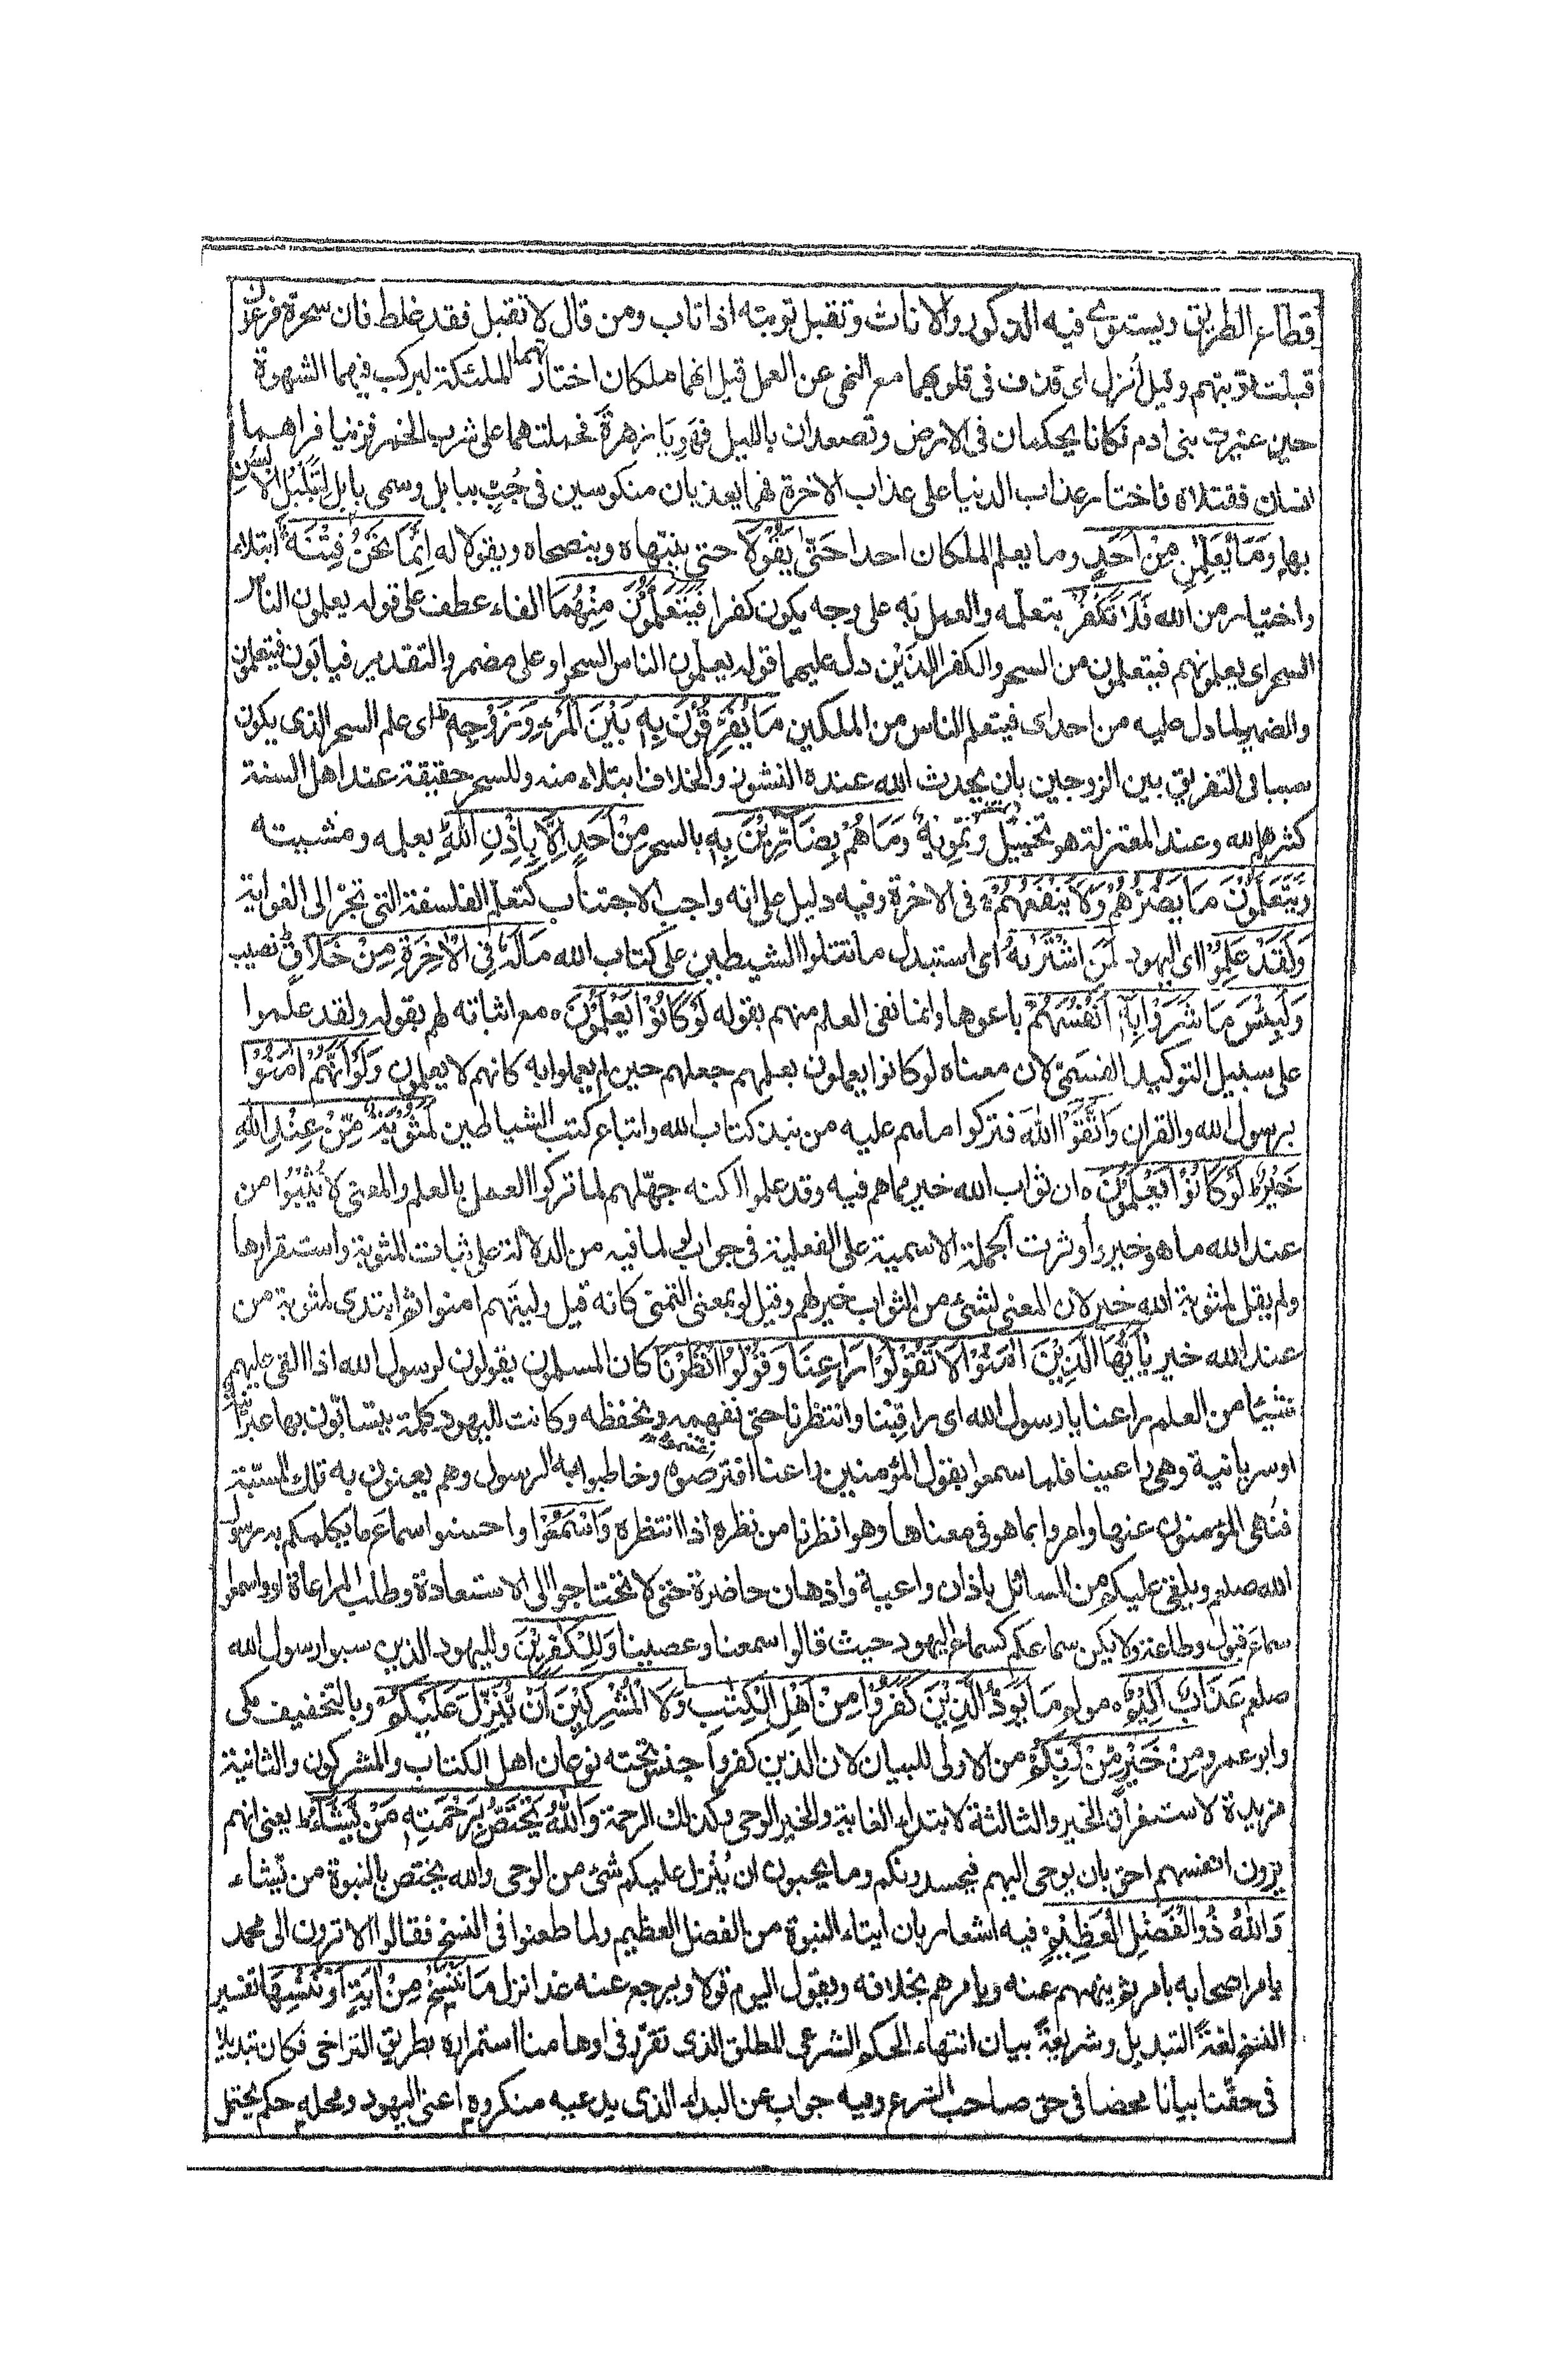 قطاع الطريق ويستوى فيه الذكور والاناث وتقبل توبته اذا تاب ومن قال لا تقبل فقد غلط فان سحرة فرعون
قبلت توبتهم وقيل أنزل اى قذف فى قلوبهما مع النهى عن العمل قيل انهما ملكان اختارتهما الملئكة لتركب فيهما الشهوة
حين عيّرت بنى ادم فكانا يحكمان فى الارض وتصعدان بالليل فهَوِيَا زهرة فحملتهما على شرب الخمر فزنيا فراهما
انسان فقتلاه فاختارا عذاب الدنيا على عذاب الاخرة فهما يعذبان منكوسين فى جُبٍّ ببابل وسمى بابل لتَبَلْبُلِ الالسُنِ
بها وَمَا يُعَلِّمٰنِ مِنْ اَحَدٍ وما يعلم الملكان احدا حَتّٰى يَقُوْلَا حتى ينبّهاه وينصحاه ويقولا له اِنَّمَا نَحْنُ فِتْنَةٌ ابتلاء
واختبار من الله فَلَا تَكْفُرْ بتعلّمه والعمل به على وجه يكون كفرا فَيَتَعَلَّمُوْنَ مِنْهُمَا الفاء عطف على قوله يعلمون الناس
السحر اى يعلمونهم فيتعلمون من السحر والكفر الذَين دل عليهما قوله يعلمون الناس السحر او على مضمر والتقدير فيابون فيتعلمون
والضمير لما دل عليه من احد اى فيتعلم الناس من الملكين مَا يُفَرِّقُوْنَ بِهٖ بَيْنَ الْمَرْءِ وَزَوْجِهٖ اى علم السحر الذى يكون
سببا فى التفريق بين الزوجين بان يحدث الله عنده النشوز والخلاف ابتلاء منه وللسحر حقيقة عند اهل السنة
كثرهم الله وعند المعتزلة هو تخييل وتمويه وَمَا هُمْ بِضَآرِّيْنَ بِهٖ بالسحر مِنْ اَحَدٍ اِلَّا بِاِذْنِ اللّٰهِ بعلمه ومشيته
وَيَتَعَلَّمُوْنَ مَا يَضُرُّهُمْ وَلَا يَنْفَعُهُمْ فى الاخرة وفيه دليل على انه واجب الاجتناب كتعلم الفلسفة التى تجرّ الى الغواية
وَلَقَدْ عَلِمُوْا اى اليهود لَمَنِ اشْتَرٰىهُ اى استبدل ما تتلوا الشيطين على كتاب الله مَا لَهٗ فِى الْاٰخِرَةِ مِنْ خَلَاقٍ نصيب
وَلَبِئْسَ مَا شَرَوْا بِهٖٓ اَنْفُسَهُمْ باعوها وانما نفى العلم منهم بقوله لَوْ كَانُوْا يَعْلَمُوْنَ ه مع اثباته لهم بقوله ولقد علموا
على سبيل التوكيد القسمى لان معناه لو كانوا يعملون بعلمهم جعلهم حين لم يعملوا به كانهم لا يعلمون وَلَوْ اَنَّهُمْ اٰمَنُوْا
برسول الله والقران وَاتَّقَوُا اللّٰه فتركوا ما هم عليه من نبذ كتاب الله واتباع كتب الشياطين لَمَثُوْبَةٌ مِّنْ عِنْدِ اللّٰهِ
خَيْرٌ لَوْ كَانُوْا يَعْلَمُوْنَ ه ان ثواب الله خير مما هم فيه وقد علموا لكنه جهّلهم لما تركوا العمل بالعلم والمعنى لاُثيبُوا من
عند الله ما هو خير واُوثرت الجملة الاسمية على الفعلية فى جواب لو لما فيه من الدلالة على ثبات المثوبة واستقرارها
ولم يقل لمثوبة الله خير لان المعنى لشئ من الثواب خير لهم وقيل لو بمعنى التمنى كانه قيل وليتهم امنوا ثم ابتدى لمثوبة من
عند الله خير يٰٓاَيُّهَا الَّذِيْنَ اٰمَنُوْا لَا تَقُوْلُوْا رَاعِنَا وَقُوْلُوا انْظُرْنَا كان المسلمون يقولون لرسول الله اذا القى عليهم
شيئا من العلم راعنا يا رسول الله اى راقِبْنا وانتظرنا حتى نفهمه ونحفظه وكانت لليهود كلمة يتسابّون بها عبرانية
او سريانية وهى راعينا فلما سمعوا بقول المؤمنين راعنا افترصوه وخاطبوا به الرسول وهم يعنون به تلك المسبّة
فنهى المؤمنون عنها وامروا بما هو فى معناها وهو انظرنا من نظره اذا انتظره وَاسْمَعُوْا واحسنوا سماع ما يكلمكم به رسول
الله صلعم ويلقى عليكم من المسائل باذان واعية واذهان حاضرة حتى لا تحتاجوا الى الاستعادة وطلب المراعاة او واسمعوا
سماع قبول وطاعة ولا يكن سماعكم كسماع اليهود حيث قالوا سمعنا وعصينا وَلِلْكٰفِرِيْنَ ولليهود الذين سبوا رسول الله
صلعم عَذَابٌ اَلِيْمٌ ه مولم مَا يَوَدُّ الَّذِيْنَ كَفَرُوْا مِنْ اَهْلِ الْكِتٰبِ وَلَا الْمُشْرِكِيْنَ اَنْ يُّنَزَّلَ عَلَيْكُمْ وبالتخفيف مكى
وابو عمرو مِنْ خَيْرٍ مِّنْ رَّبِّكُمْ من الاولى للبيان لان الذين كفروا جنس تحته نوعان اهل الكتاب والمشركون والثانية
مزيدة لاستغراق الخير والثالثة لابتداء الغاية والخير الوحى وكذلك الرحمة وَاللّٰهُ يَخْتَصُّ بِرَحْمَتِهٖ مَنْ يَّشَآءُ يعنى انهم
يرون انفسهم احق بان يوحى اليهم فيحسدونكم وما يحبون ان يُنزل عليكم شئ من الوحى والله يختص بالنبوة من يّشاء
وَاللّٰهُ ذُو الْفَضْلِ الْعَظِيْمِ فيه اشعار بان ايتاء النبوة من الفضل العظيم ولما طعنوا فى النسخ فقالوا الا ترون الى محمد
يامر اصحابه بامر ثم ينهٰهم عنه ويامرهم بخلافه ويقول اليوم قولا ويرجع عنه غدا نزل مَا نَنْسَخْ مِنْ اٰيَةٍ اَوْ نُنْسِهَا تفسير
النسخ لغة التبديل وشريعةً بيان انتهاء الحكم الشرعى المطلق الذى تقرّر فى اوهامنا استمراره بطريق التراخى فكان تبديلا
فى حقّنا بيانا محضا فى حق صاحب الشرع وفيه جواب عن البداء الذى يدعيه منكروه اعنى اليهود ومحله حكم يحتمل